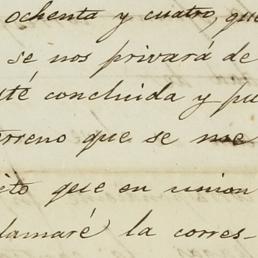 ochenta y cuatro, que
se nos privará de
té concluida y pu
rreno que se me
ito que en union
lamaré la corres-